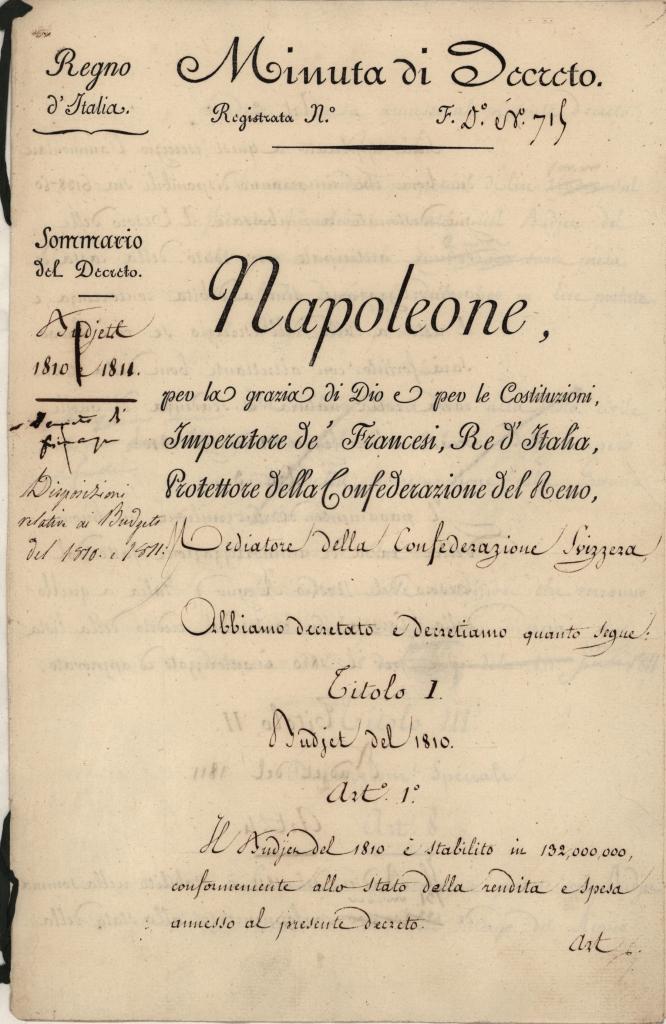 Regno
d'Italia.
Minuta di Decreto.
Registrata N.º F. D.º N.º 715
Sommario
del Decreto.
Budjett
1810 e 1811.
Decreto di
Disposizioni
relative ai Budgets
del 1810. e 1811.
Napoleone,
per la grazia di Dio e per le Costituzioni,
Imperatore de' Francesi, Re d'Italia,
Protettore della Confederazione del Reno,
Mediatore della Confederazione Svizzera,
Abbiamo decretato e decretiamo quanto segue:
Titolo I.
Budjet del 1810.
Art.º 1º
Il Budjet del 1810 è stabilito in 132,000,000,
conformemente allo stato della rendita e spesa
annesso al presente decreto.
Art